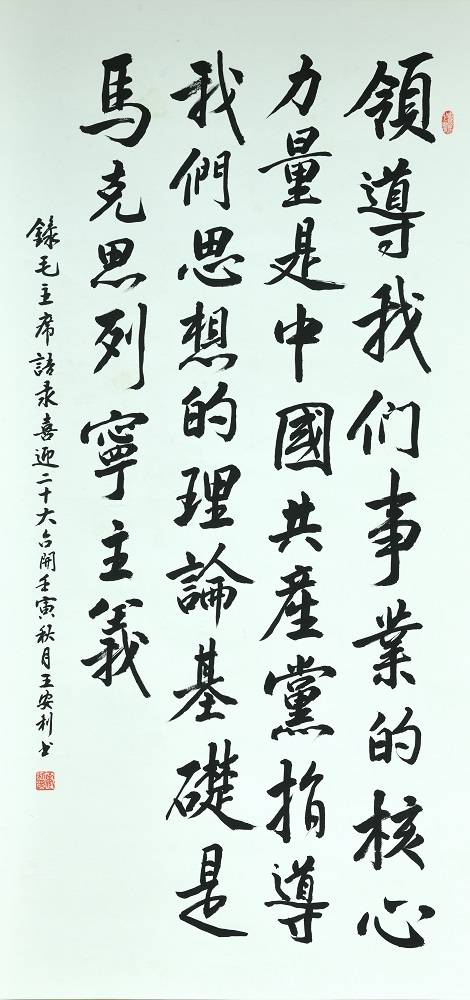 領導我们事業的核心
力量是中國共產黨指導
我們思想的理論基礎是
馬克思列寧主義
錄毛主席語录喜迎二十大召開壬寅秋月王安利书